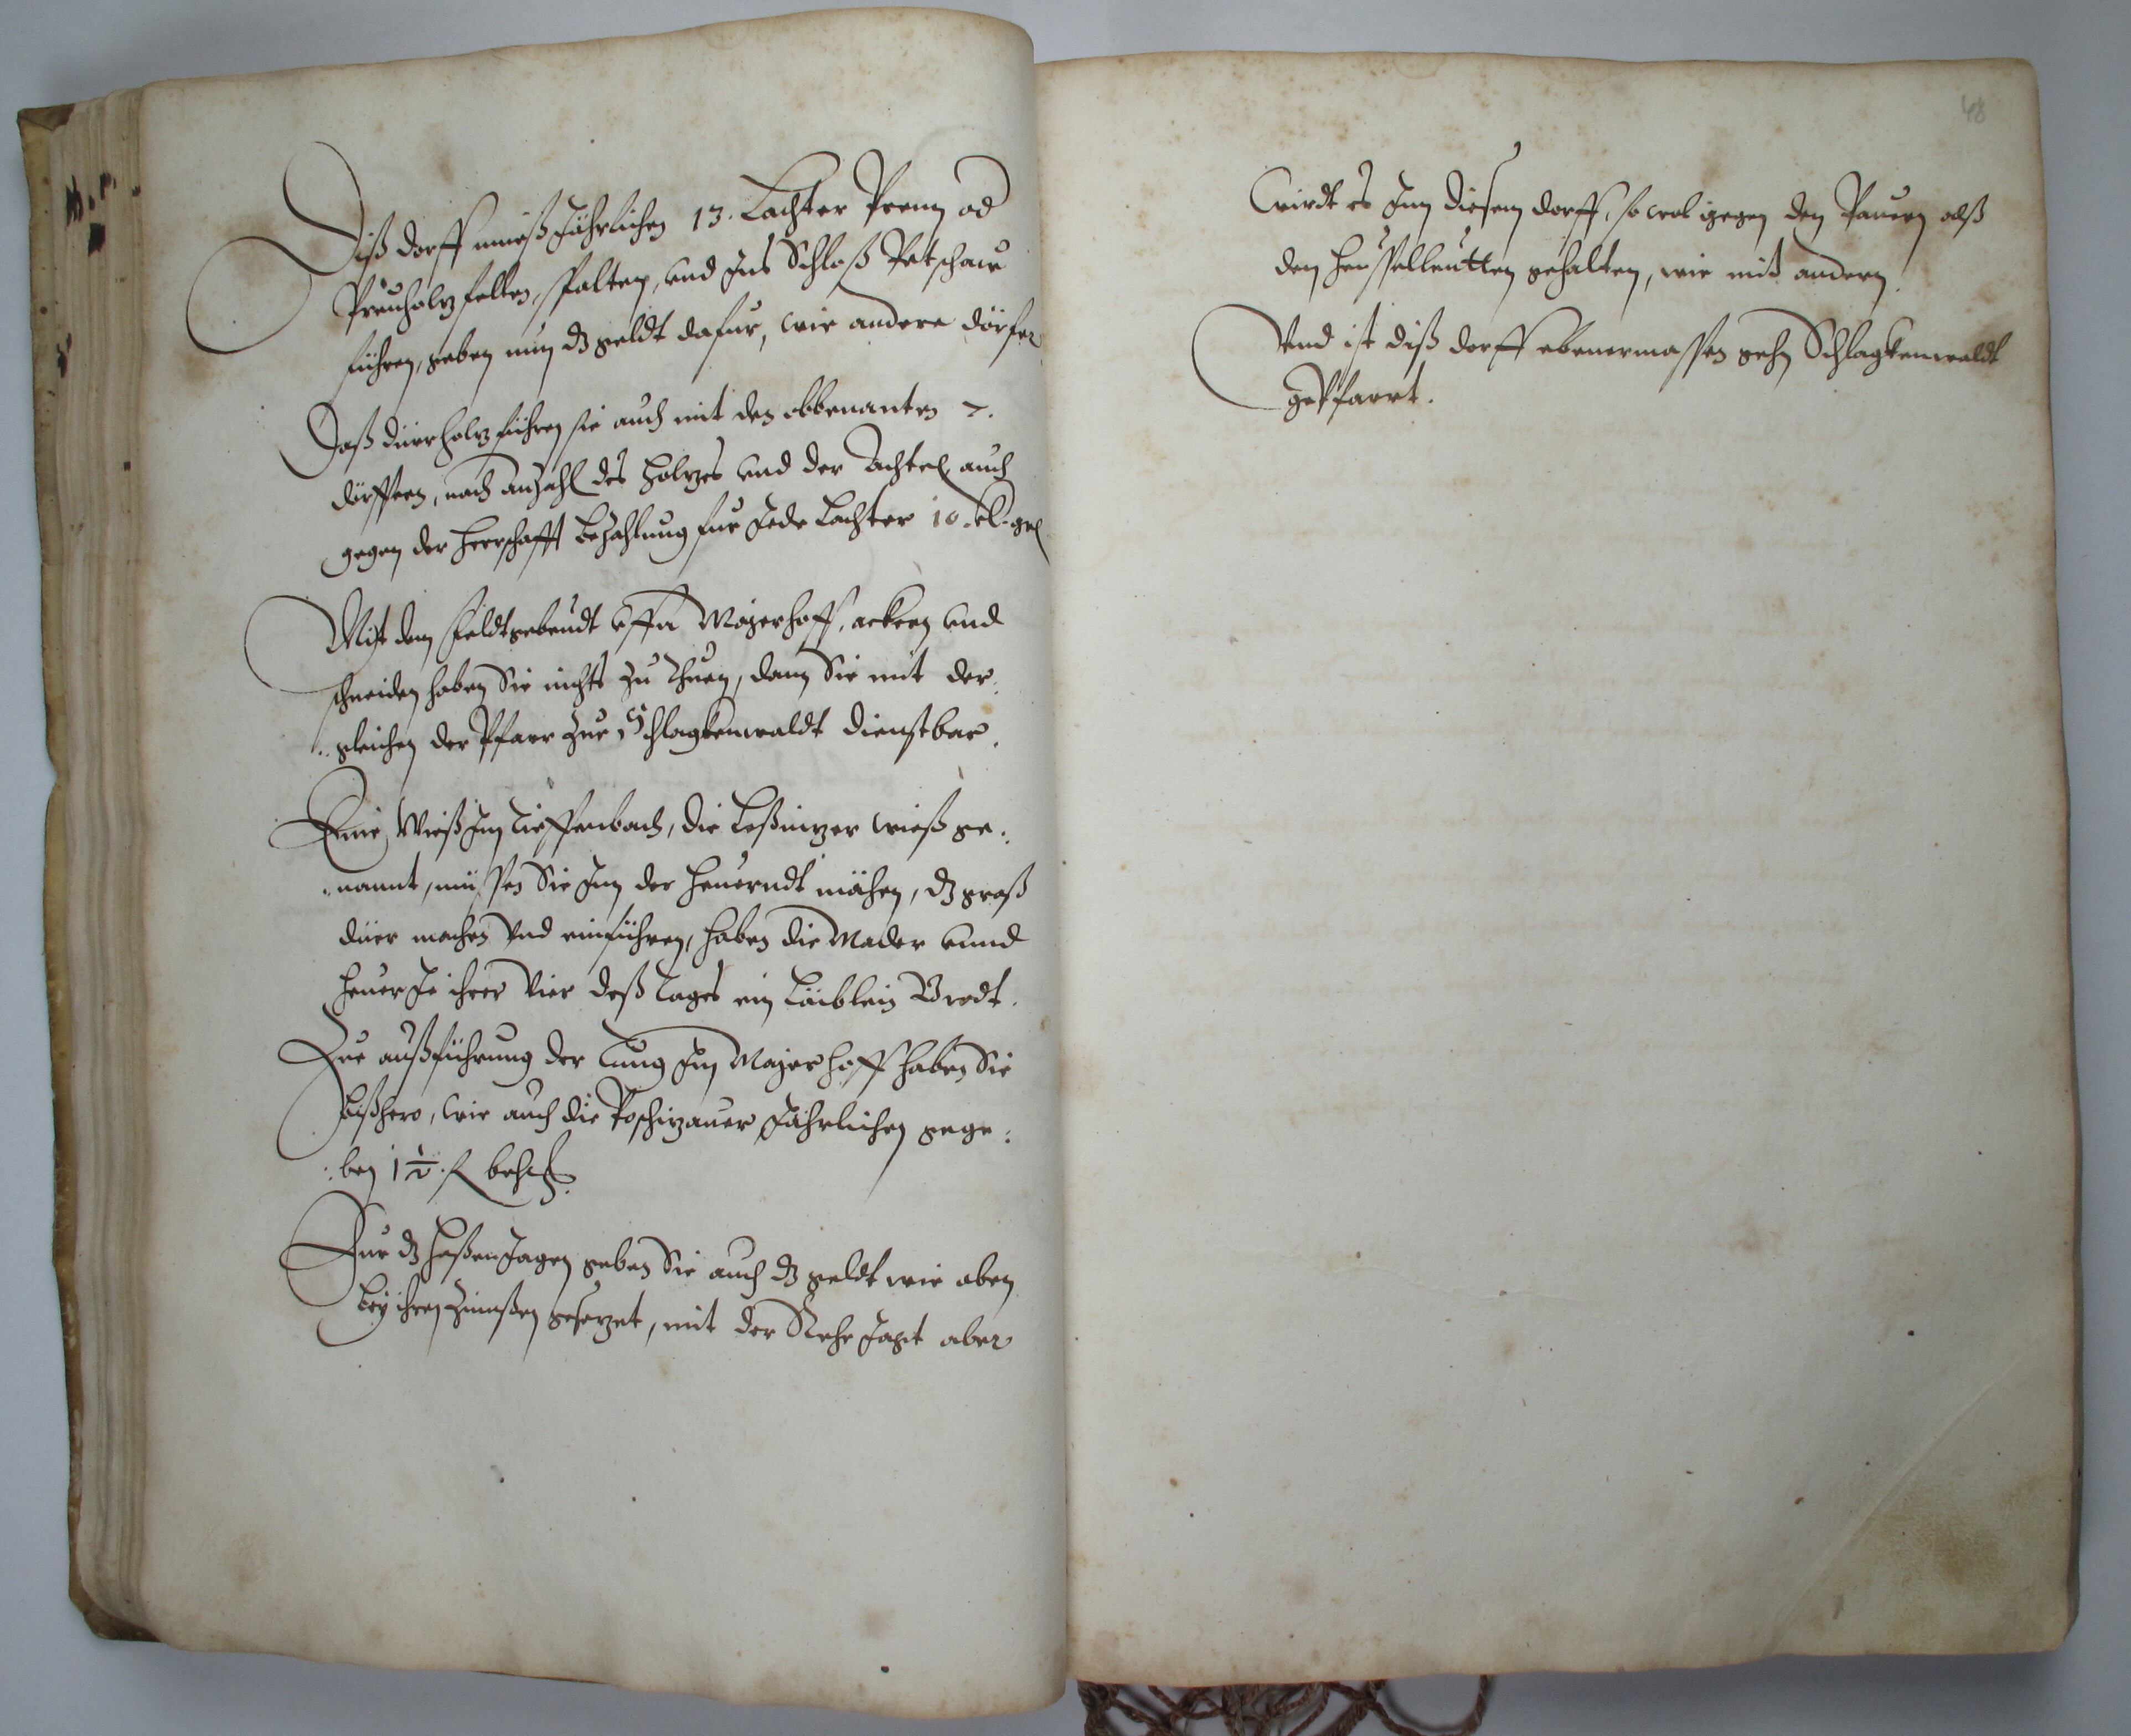 Diß dorff mueß Jährlichen 13. Lachter Prenn od
Preuholz fellen, spalten, und Ins Schloß Petschaw
führen, geben nun dz geldt dafur, wie andere dörfer
Daß dürrholz führen sie auch mit den obbenanten 7.
dörffern, nach anzahl des Holzes und der Achtel auch
gegen der Herrschafft bezahlung fur Jede Lachter 10. kl. gr
Mit dem Feldtgebeudt uffn Mayerhoff, ackern und
schneiden haben Sie nichts zu thuen, dann Sie mit der:
:gleichen der Pfarr zur Schlagkenwaldt dienstbar.
Eine Wieß Im Tieffenbach, die Leßnizer wieß ge:
:nannt, müssen Sie Inn der Heuerndt mähen, dz graß
dürr machen Und einführen, haben die Mader unnd
Heuer Je ihrer Vier deß Tages ein Läiblein Brodt.
Zue außführung der Tung Im Mayerhoff haben Sie
bißhero, wie auch die Poschizauer Jährlichen gege:
:ben 1½. ß
Fur dz Haßen Jagen geben Sie auch dz geldt wie oben
bey ihren Zinnßen gesezet, mit der Rehe Jagt aber
48
wirdt es Inn diesem dorff, so wol gegen den Pauern alß
den Heusselleutten gehalten, wie mit andern.
Und ist diß dorff ebenermassen gehn Schlagkenwaldt
gepfarrt.